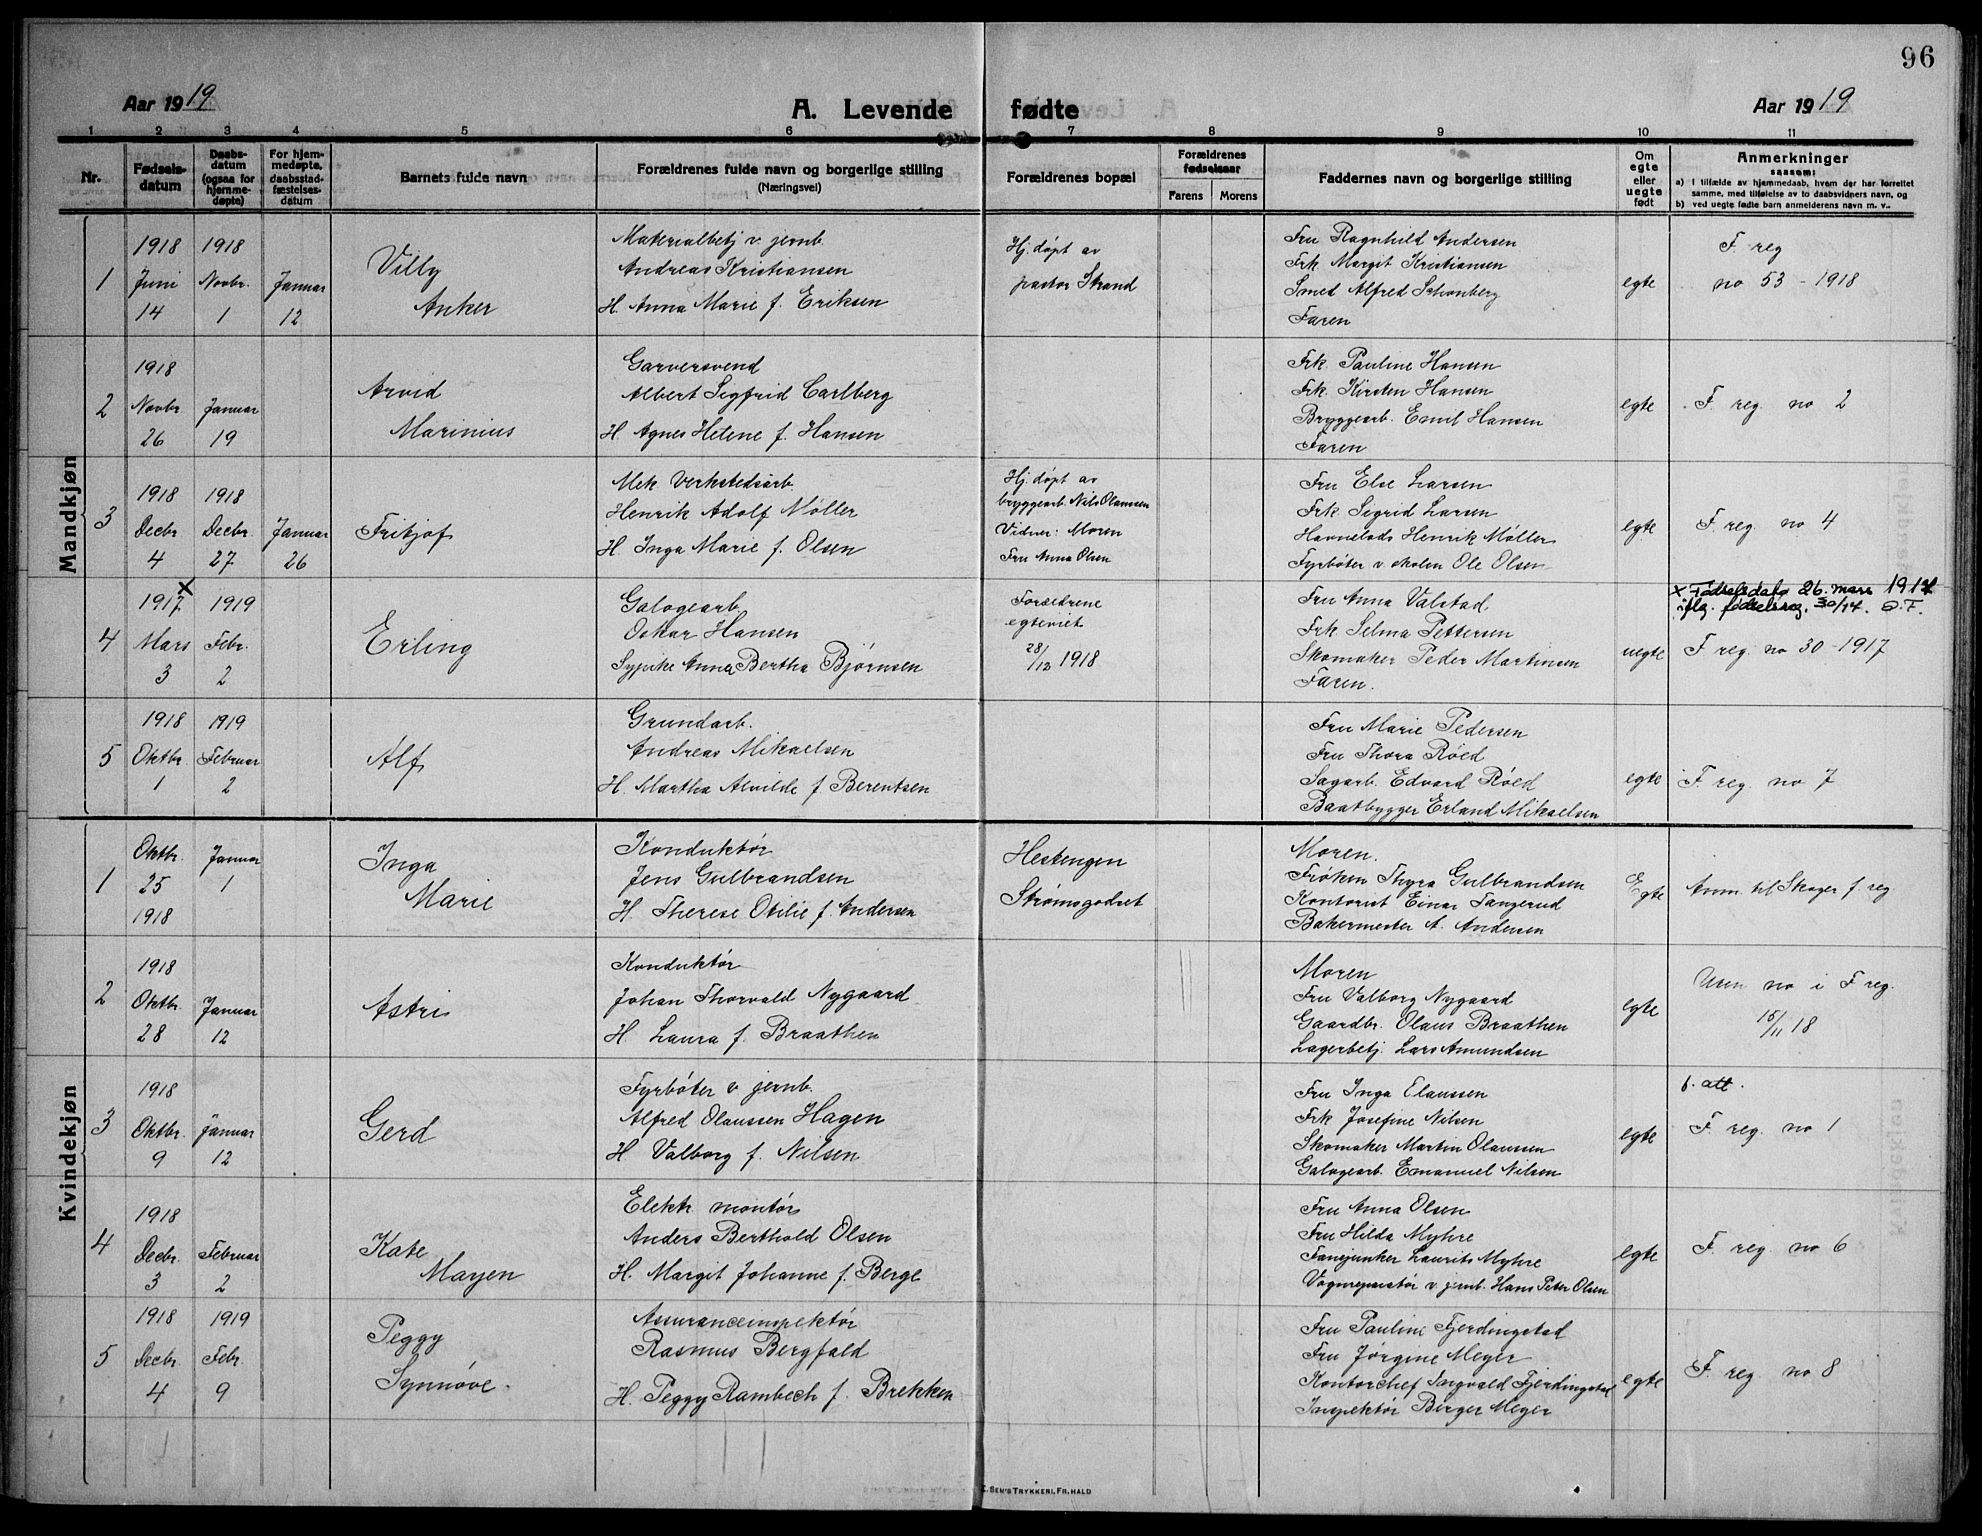 96
Aar 1919
A. Levende fødte
Aar 1919
1 2 3 4 5 6 7 8 9 10 11
Nr.
Fødselsdatum
Daabsdatum (ogsaa for hjemmedøpte)
For hjemmedøpte, daabsstadfæstelsesdatum
Barnets fulde navn
Forældrenes fulde navn og borgerlige stilling (Næringsvei)
Forældrenes bopæl
Forældrenes fødselsaar
Farens
Morens
Faddernes navn og borgerlige stilling
Om egte eller uegte født
Anmerkninger
saasom:
a) I tilfælde av hjemmedaab, hvem der har forrettet samme, med tilføielse av to daabsvidners navn, og
b) ved uegte fødte barn anmelderens navn m. v.
Mandkjøn
1
1918 Juni 14
1918 Novbr. 1
Januar 12
Villy
Anker
Materialbetj v. jernb.
Andreas Kristiansen
H. Anna Marie f. Eriksen
Hj. døpt av
pastor Strand
Fru Ragnhild Andersen
Frk Margit Kristiansen
Smed Alfred Schønberg
Faren
egte
F. reg
no 53 - 1918
2
1918 Novbr. 26
Januar 19
Arvid
Marinius
Garversvend
Albert Segfrid Carlberg
H. Agnes Helene f. Hansen
Frk. Pauline Hansen
Frk. Kirsten Hansen
Bryggearb. Emil Hansen
Faren
egte
F. reg. no 2
3
1918 Decbr. 4
1918 Decbr. 27
Januar 26
Fritjof
Mek verkstedsarb.
Henrik Adolf Møller
H. Inga Marie f. Olsen
Hj. døpt av
bryggearb Nils Olaussen
Vidner: Moren
Fru Anna Olsen
Fru Else Larsen
Frk. Sigrid Larsen
Havnelods Henrik Møller
Fyrbøter v. skolen Ole Olsen
egte
F. reg no 4
4
1917 x Mars 3
1919 Febr. 2
Erling
Galogearb.
Oskar Hansen
Sypike Anna Bertha Bjørnsen
Forældrene
egteviet
28/12 1918
Fru Anna Valstad
Frk. Selma Pettersen
Skomaker Peder Martinsen
Faren.
uegte
x Fødselsdato 26. mars 1917
iflg. fødselsreg. 30/14. O.F.
F. reg. no 30 - 1917
5
1918 Oktbr. 1
1919 Februar 2
Alf
Grundarb.
Andreas Mikaelsen
H. Martha Alvilde f Berentsen
Fru Marie Pedersen
Fru Thora Røed
Sagarb. Edvard Røed
Baatbygger Erland Mikaelsen
egte
F. reg. no 7
Kvindekjøn
1
Oktbr. 25 1918
Januar 1
Inga
Marie
Konduktør
Jens Gulbrandsen
H. Therese Otilie f. Andersen
Hestengen
Strømsgodset
Moren.
Frøken Thyra Gulbrandsen
Kontorist Einar Tangerud
Bakermester A. Andersen
Egte
Anm til Skoger f. reg
2
1918 Oktbr. 28
Januar 12
Astri
Konduktør
Johan Thorvald Nygaard
H. Laura f. Braathen
Moren
Fru Valborg Nygaard
Gaardbr. Olaus Braathen
Lagerbetj. Lars Amundsen
egte
Uten no i F reg.
15/11 18
3
1918 Oktbr. 9
Januar 12
Gerd
Fyrbøter v jernb.
Alfred Olaussen Hagen
H. Valborg f. Nilsen
Fru Inga Olaussen
Frk Josefine Nilsen
Skomaker Martin Olaussen
Galogearb. Emanuel Nilsen
egte
f. att.
F. reg. no 1
4
1918 Decbr. 3
Februar 2
Kate
Mayen
Elektr. montør
Anders Berthold Olsen
H. Margit Johanne f. Berge
Fru Anna Olsen
Fru Hilda Myhre
Fanejunker Laurits Myhre
Vognreparatør v. jernb. Hans Peter Olsen
egte
F. reg. no 6
5
1918 Decbr. 4
1919 Febr. 9
Peggy
Synnøve
Assuranceinspektør
Rasmus Bergfald
H. Peggy Rambech f. Brekken
Fru Pauline Fjerdingstad
Fru Jørgine Meyer
Kontorchef Ingvald Fjerdingstad
Inspektør Birger Meyer
egte
F. reg no 8
SEN'S TRYKKERI, FR. HALD